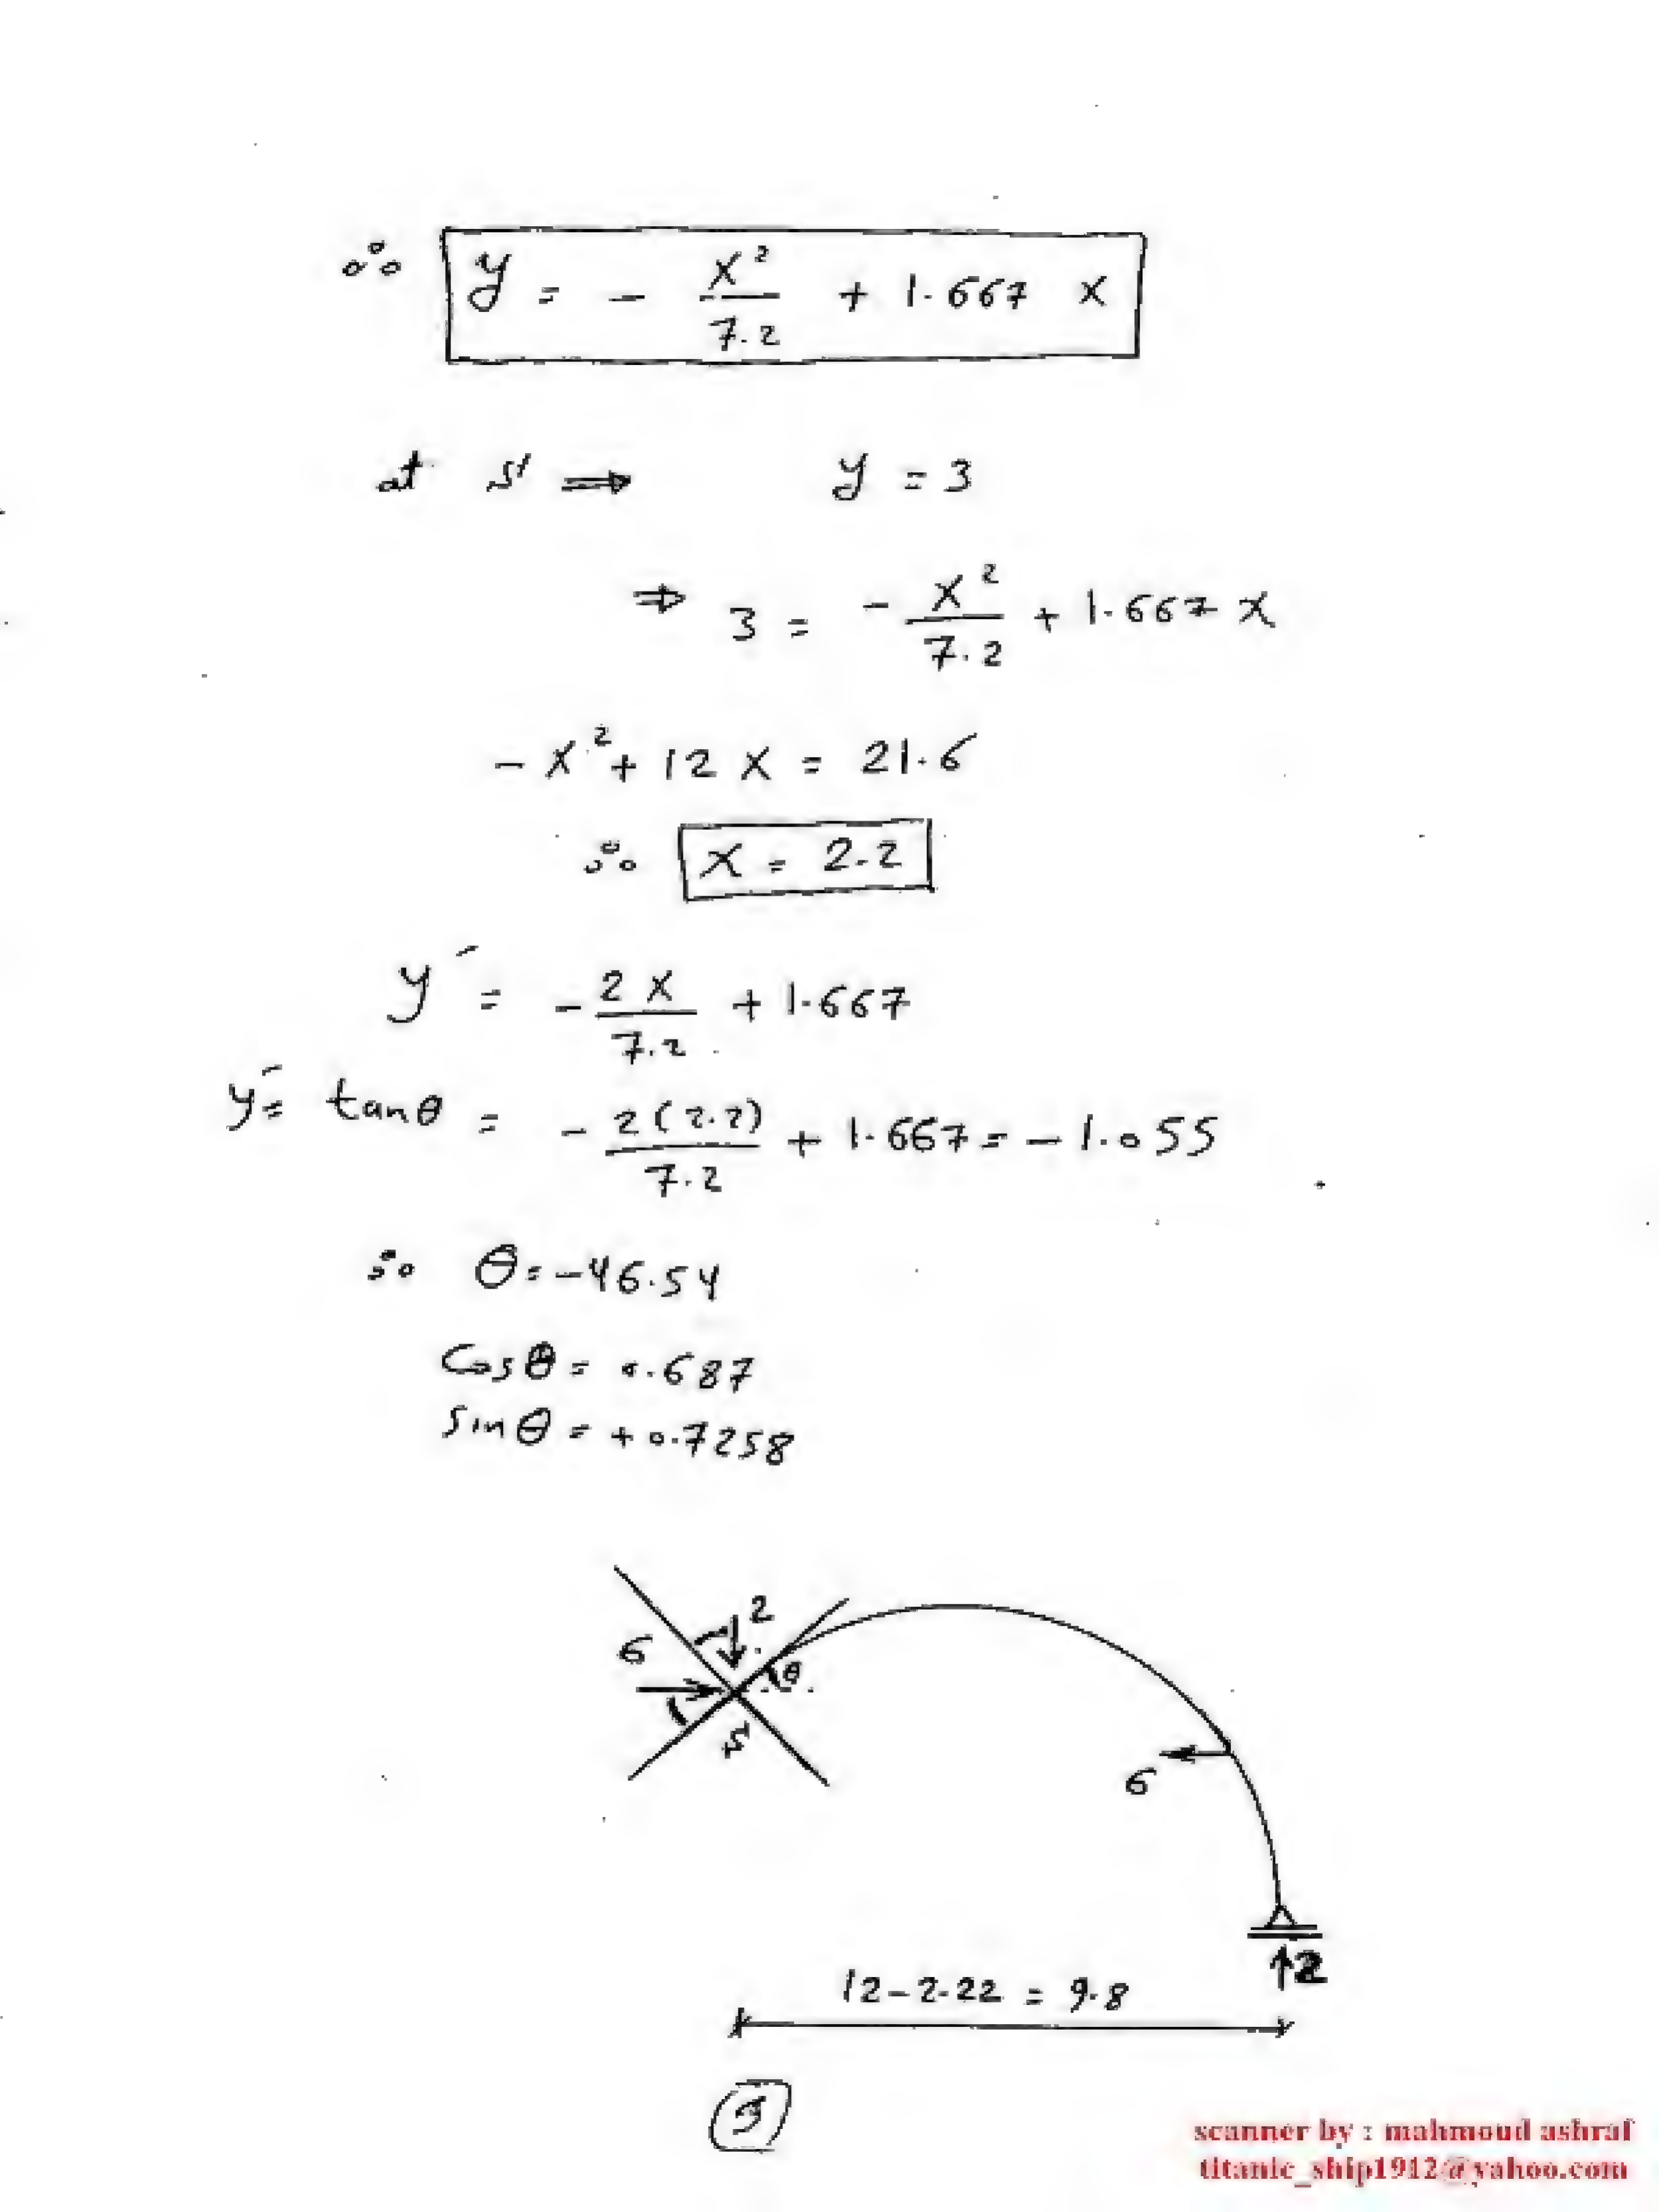 ∴ y = - x² / 7.2 + 1.667 x
at s ⇒ y = 3
⇒ 3 = - x² / 7.2 + 1.667 x
- x² + 12 x = 21.6
∴ x = 2.2
y′ = - 2 x / 7.2 + 1.667
y′ = tan θ = - 2 (2.2) / 7.2 + 1.667 = - 1.055
∴ θ = - 46.54
Cos θ = 0.687
sin θ = + 0.7258
2
6
θ
s
6
2
12 - 2.22 = 9.8
3
scanner by : mahmoud ashraf
titanic_ship1912@yahoo.com